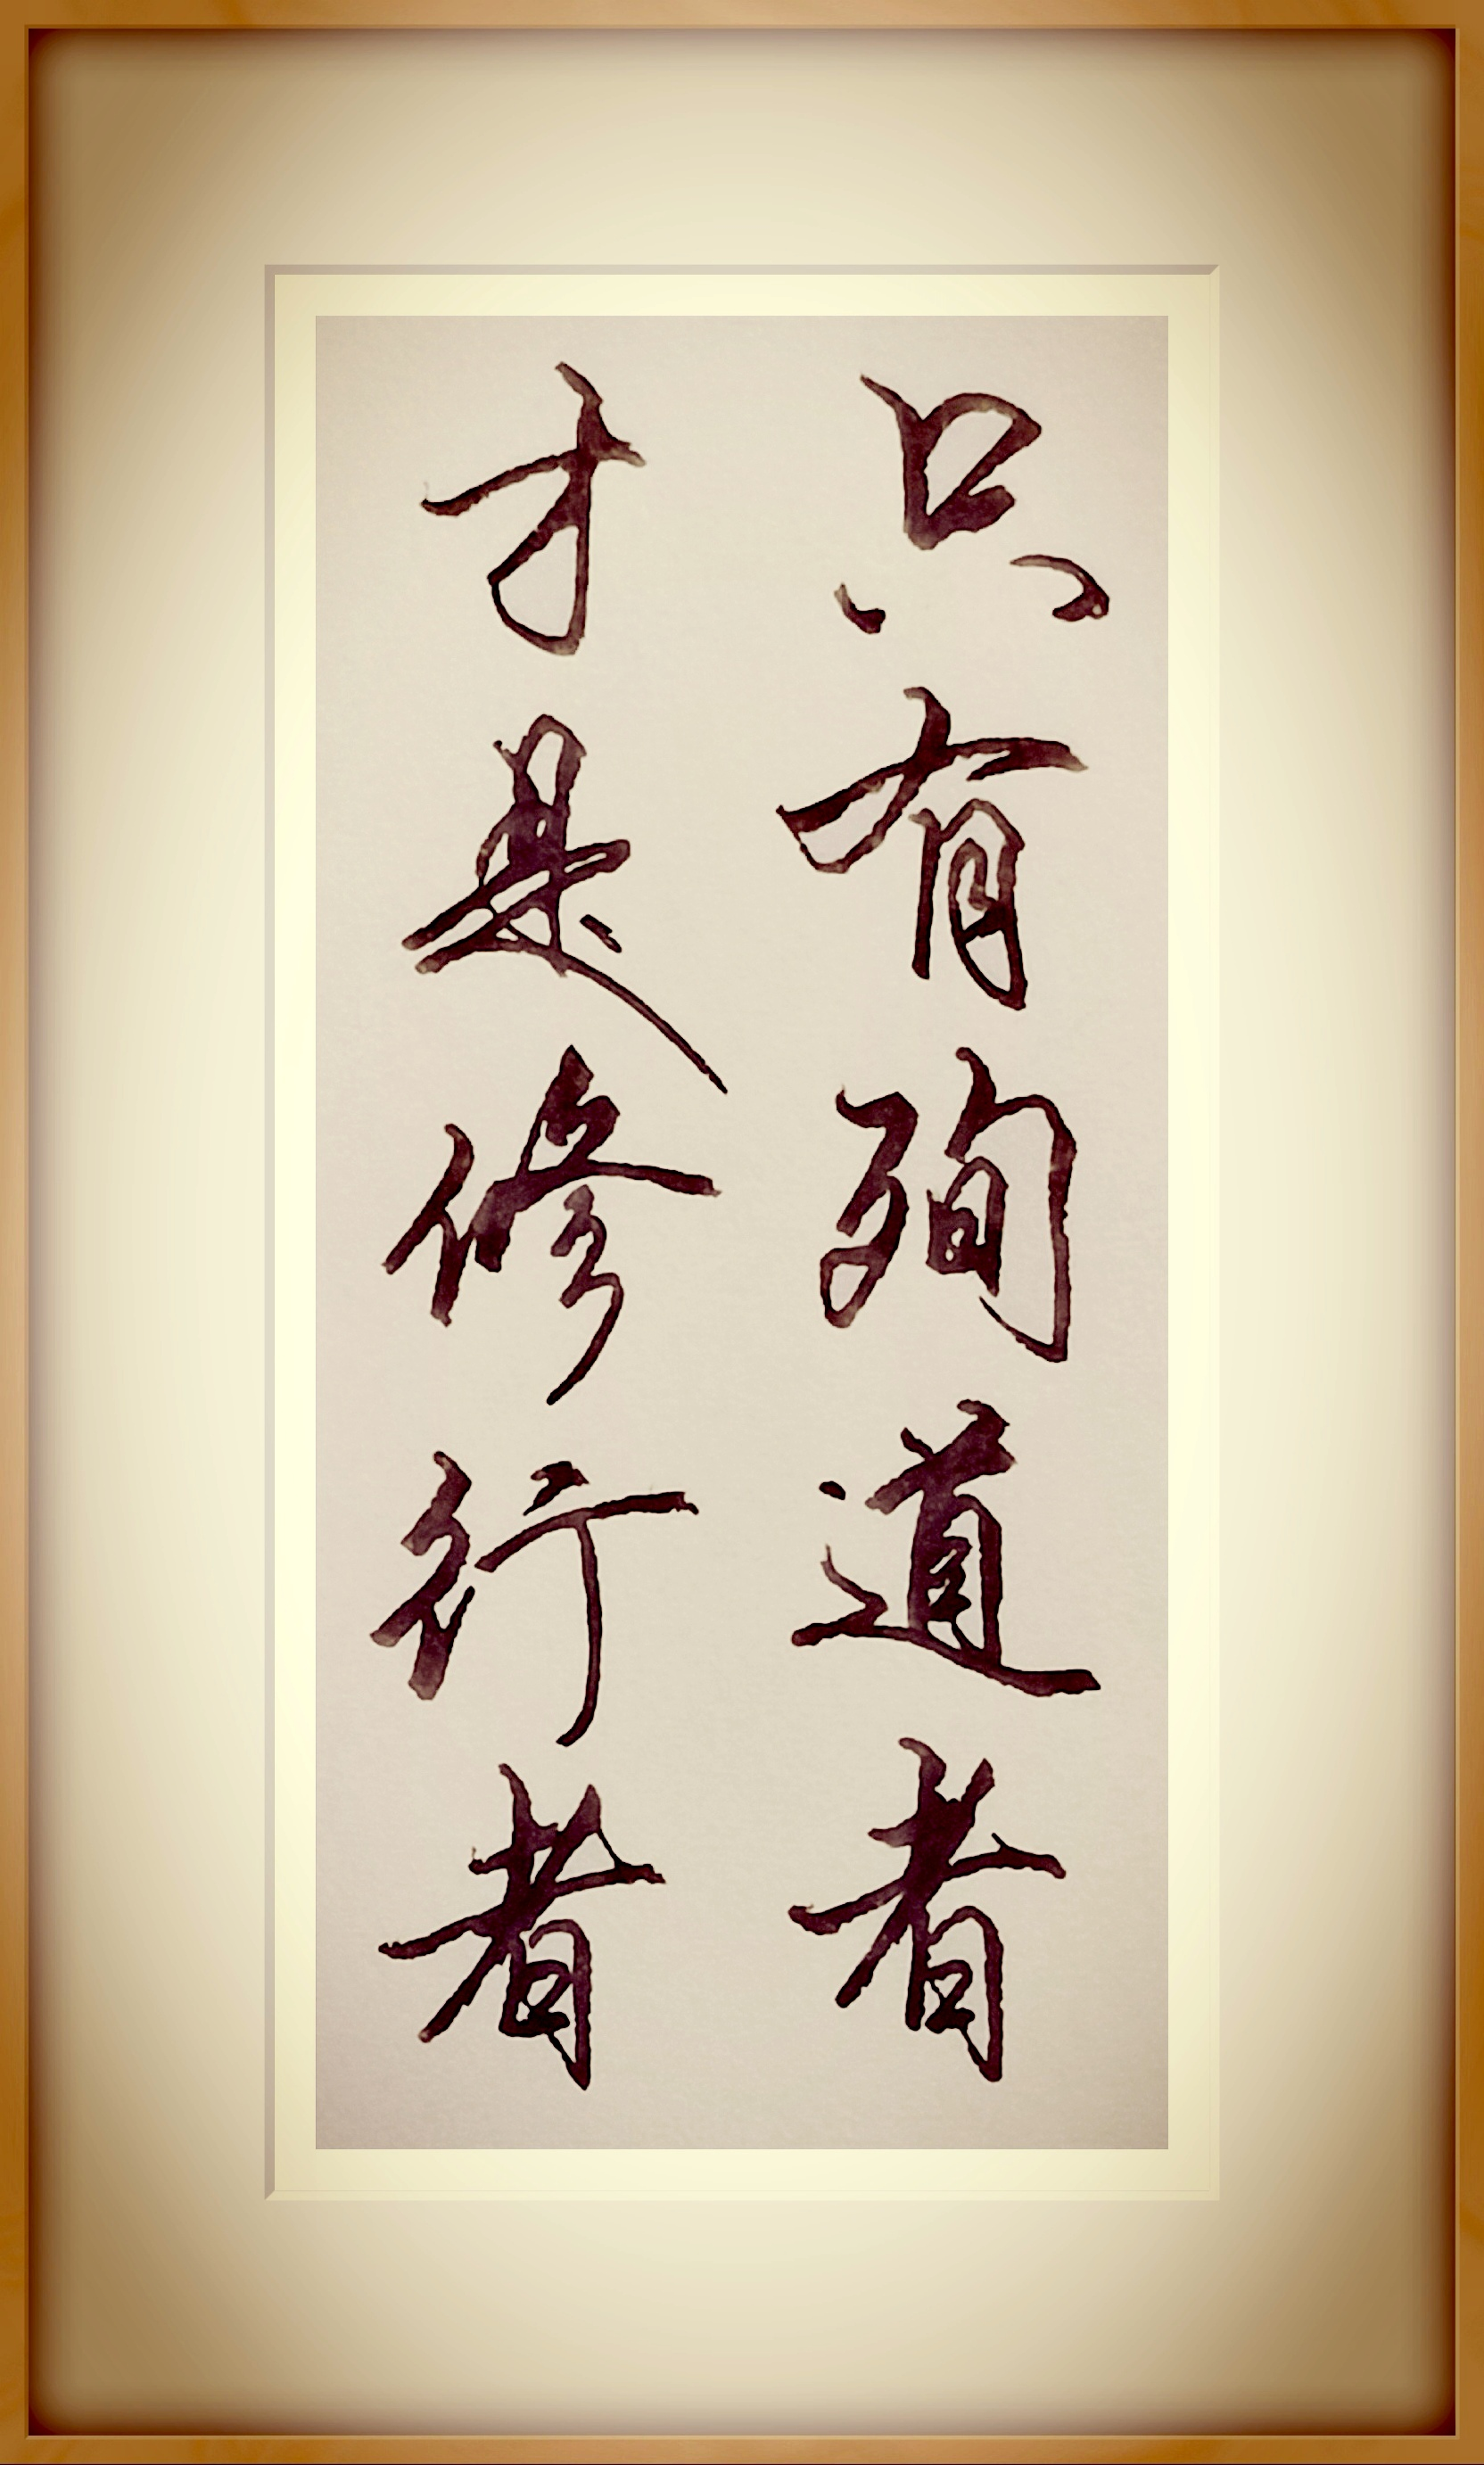 只有殉道者
才是修行者